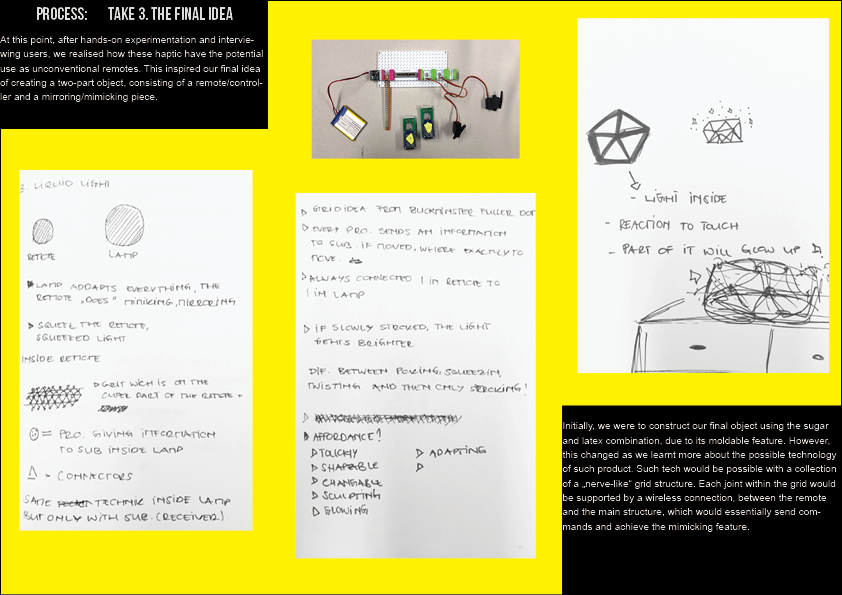 PROCESS: TAKE 3. THE FINAL IDEA
At this point, after hands-on experimentation and intervie-
wing users, we realised how these haptic have the potential
use as unconventional remotes. This inspired our final idea
of creating a two-part object, consisting of a remote/control-
ler and a mirroring/mimicking piece.
3. LIQUID LIGHT
REMOTE LAMP
LAMP ADDAPTS EVERYTHING, THE
REMOTE „DOES" MIMIKING, MIRRORING
SQUEEZE THE REMOTE,
SQUEEZED LIGHT
INSIDE REMOTE
GRIT WICH IS ON THE
OUTER PART OF THE REMOTE +
= PRO. GIVING INFORMATION
TO SUB INSIDE LAMP
- CONNECTORS
SAME TECHNIK INSIDE LAMP
BUT ONLY WITH SUB. (RECEIVER)
GRID IDEA FROM BUCKMINSTER FULLER DOM
EVERY PRO. SENDS AN INFORMATION
TO SUB. IF MOVED, WHERE EXACTLY TO
MOVE.
ALWAYS CONNECTED 1 IN REMOTE TO
1 IN LAMP
IF SLOWLY STROKED, THE LIGHT
GETS BRIGHTER
DIF. BETWEEN POKING, SQUEEZIN,
TWISTING AND THEN ONLY STROKING!
AFFORDANCE?
TOUCHY
SHAPABLE
CHANGABLE
SCULPTING
GLOWING
ADAPTING
- LIGHT INSIDE
- REACTION TO TOUCH
- PART OF IT WILL GLOW UP
Initially, we were to construct our final object using the sugar
and latex combination, due to its moldable feature. However,
this changed as we learnt more about the possible technology
of such product. Such tech would be possible with a collection
of a „nerve-like" grid structure. Each joint within the grid would
be supported by a wireless connection, between the remote
and the main structure, which would essentially send com-
mands and achieve the mimicking feature.